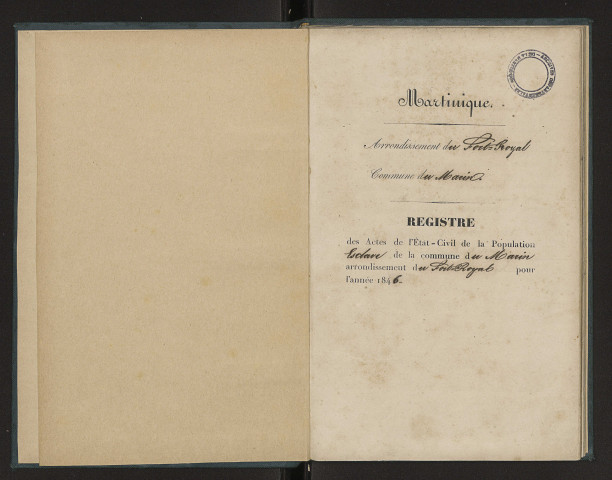 Martinique.
Arrondissement du Fort-Royal
Commune du Marin
REGISTRE
des Actes de l'État-Civil de la Population
Esclave de la commune du Marin
arrondissement du Fort-Royal pour
l'année 1846.